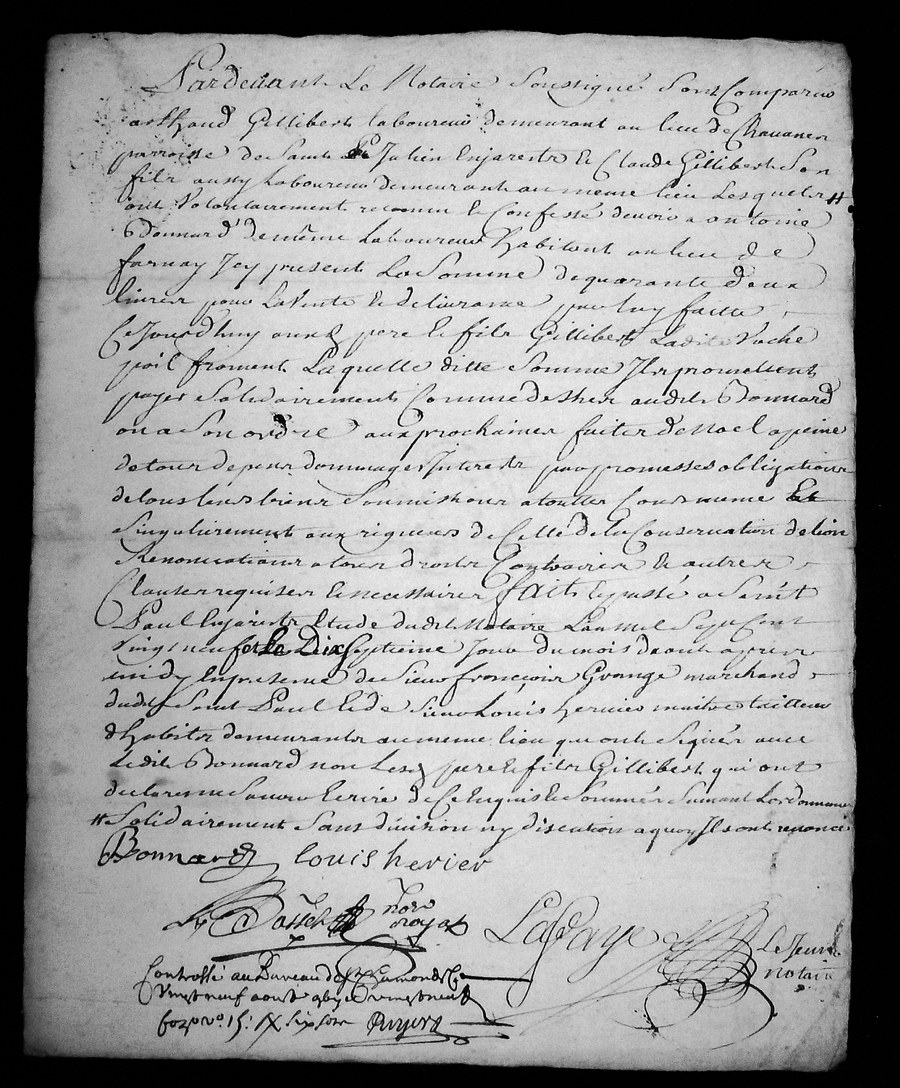 Pardevant Le Notaire Soussigné Sont Comparus
Gillibert laboureur demeurant au lieu de Chavanes
parroisse de Saint Julien Enjarestz & Claude Gillibert Son
fils aussy Laboureur demeurant au meme lieu Lesquels #
ont Volontairement reconnu & Confessé devoir a antoine
Bonnard de même Laboureur habitant au lieu de
farnay Icy present La Somme de quarante deux
livres pour La Vente & delivrance par luy faitte
Ce Jourdhuy auxd pere & fils Gillibert Ladite Vache
poil froment Laquelle ditte Somme Ils promettent
payer Solidairement Comme dessus audit Bonnard
ou a Son ordre aux prochaines faites de Noel a peine
de tour depens dommages Interests par promesses obligations
de tous leurs biens Soumissions a touttes Cours meme Et
Singulierement aux rigueurs de Celle de la Conservation de lion
Renonciations a tous droits Contraires & autres
Clauses requises & necessaires fait & passé a Saint
Paul Enjarestz Etude dudit Notaire Lan mil Sept Cent
Vingt neuf et Le Dix Septieme Jour du mois daout apres
midy En presence de Sieur françois Grange marchand
dudit Saint Paul & de Sieur Louis hervier maitre tailleur
dhabits demeurants au meme lieu qui ont Signés avec
Ledit Bonnard non Lesd pere & fils Gillibert qui ont
declares ne Savoir Ecrire de Ce Enquis & Sommés Suivant Lordonnance
# Solidairement Sans division ny discution a quoy Ils ont renoncé
Bonnard louis hervier
nore
royal
Lafaye Le Jeune
notaire
Controllé au Bureau de St Chamond Ce
Vingt neuf aoust Vingt neuf
fo vo 15: six sols